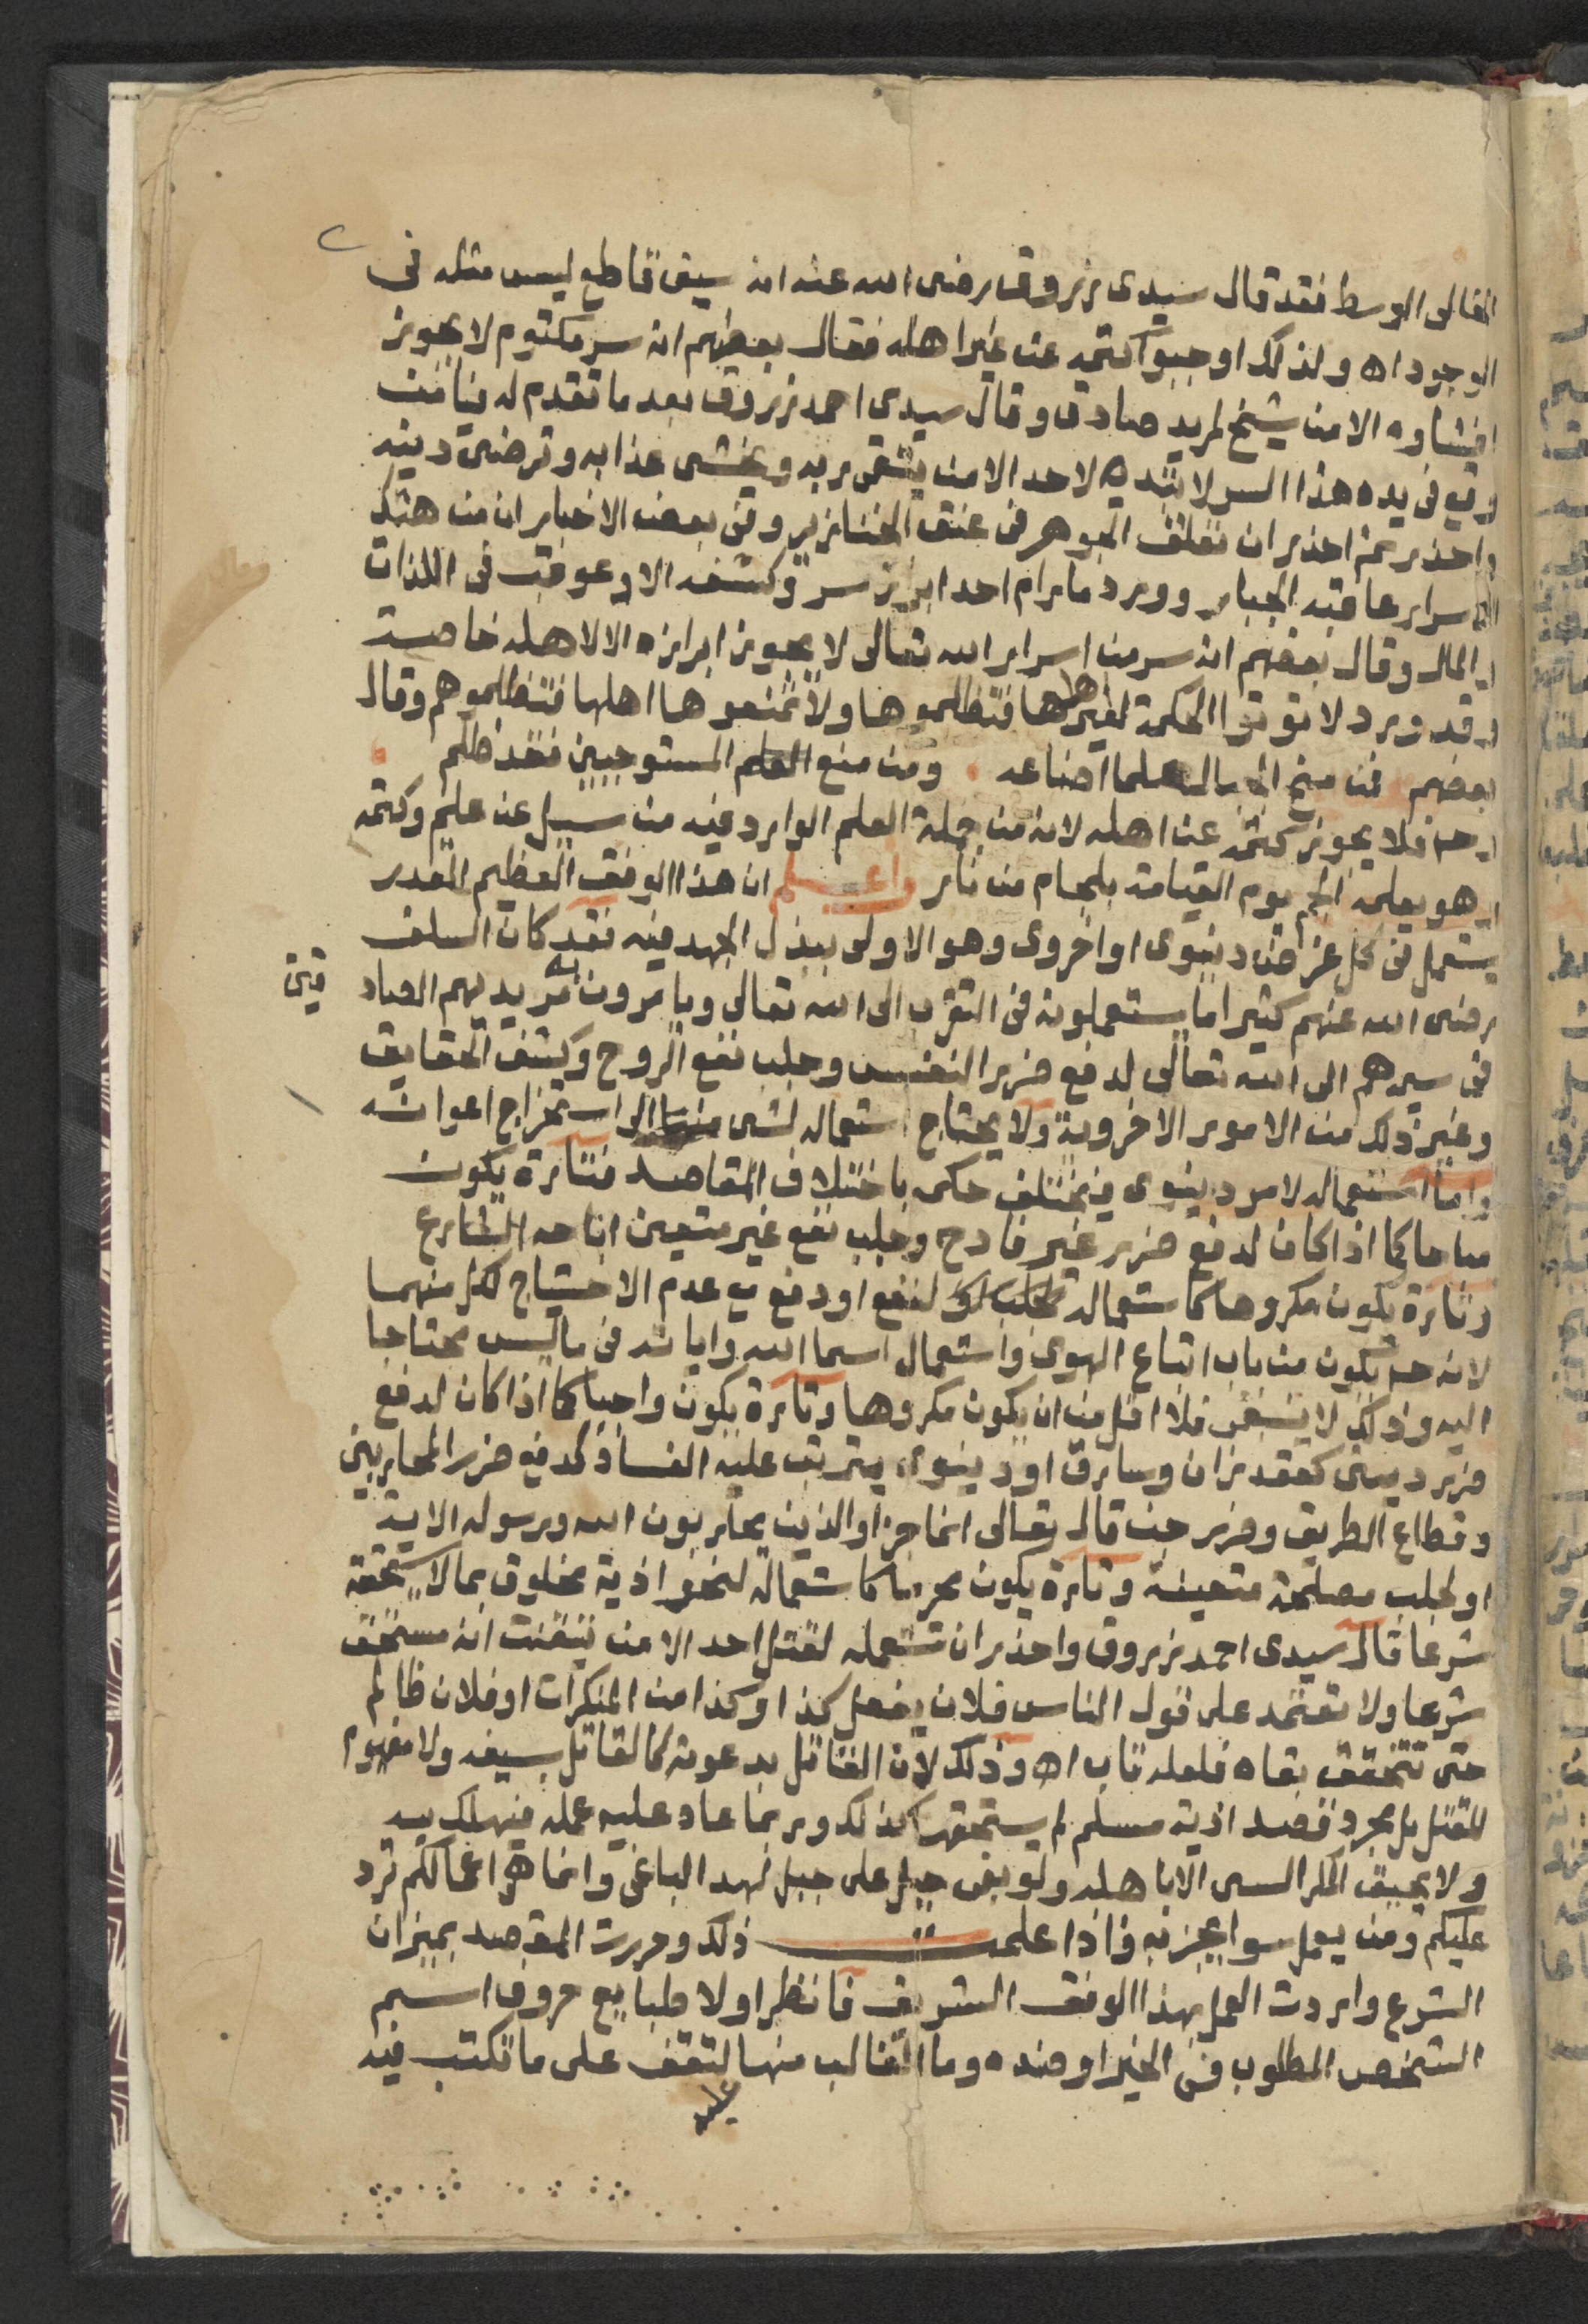 الخالى الوسط فقد قال سيدى زروق رضى الله عنه انه سيف قاطع ليس مثله فى
الوجود اه ولذلك اوجبوا كتمه عن غير اهله فقال بعضهم انه سر مكتوم لا يجوز
افشاوه الا من شيخ لمريد صادق وقال سيدى احمد زروق بعد ما تقدم له فيا من
وقع فى يده هذا السر لا تبده لاحد الا من يتقى ربه ويخشى عذابه وترضى دينه
واحذر ثم احذر ان تعلق الجوهر فى عنق الخنازير وفى بعض الاخبار ان من هتك
الاسرار عاقبه الجبار وورد ما رام احد ابراز سر وكشفه الا وعوقب فى الذات
والمال وقال بعضهم انه سر من اسرار الله تعالى لا يجوز ابرازه الا لاهله خاصة
وقد ورد لا توتوا الحكمة لغير اهلها فتظلموها ولا تمنعوها اهلها فتظلموهم وقال
بعضهم فمن منح الجهال علما اضاعه ومن منع العلم المستوجبين فقد ظلم
وح فلا يجوز كتمه عن اهله لانه من جملة العلم الوارد فيه من سيل عن علم وكتمه
وهو يعلمه الجم يوم القيامة بلجام من نار واعلم ان هذا الوفق العظيم القدر
يستعمل فى كل غرض دنيوى او اخروى وهو الاولى ببذل الجهد فيه فقد كان السلف
رضى الله عنهم كثيرا ما يستعملونه فى التقرب الى الله تعالى ويامرون به مريديهم الصاد
قين
فى سيرهم الى الله تعالى لدفع ضرر النفس وجلب نفع الروح وكشف الحقايق
وغير ذلك من الامور الاخروية ولا يحتاج استعماله لشى منها الى استخراج اعوانه
واما استعماله لامر دنيوى فيختلف حكمه باختلاف المقاصد فتارة يكون
مباحا كما اذا كان لدفع ضرر غير فادح وجلب نفع غير متعين اباحه الشارع
وتارة يكون مكروها كاستعماله لنفع او دفع مع عدم الاحتياج لكل منهما
لانه ح يكون من باب اتباع الهوى واستعمال اسما الله واياته فى ما ليس محتاجا
اليه وذلك لا ينبغى فلا اقل من ان يكون مكروها وتارة يكون واجبا كما اذا كان لدفع
ضرر دينى كعقد زان وسارق او دنيوى يترتب عليه الفساد كدفع ضرر المحاربين
وقطاع الطريق وضرر جن قال تعالى انما جزاو الذين يحاربون الله ورسوله الاية
او لجلب مصلحة متعينة وتارة يكون محرما كاستعماله لنحو اذية مخلوق بما لا يستحقه
شرعا قال سيدى احمد زروق واحذر ان تستعمله لقتل احد الا من تيقنت انه مستحق
شرعا ولا تعتمد على قول الناس فلان يفعل كذا وكذا من المنكرات او فلان ظالم
حتى تتحقق بقاه فلعله تاب اه وذلك لان القاتل بدعوته كالقاتل بسيفه ولا مفهوم
للقتل بل مجرد قصد اذية مسلم لم يستحقها كذلك وربما عاد عليه عمله فيهلك به
ولا يحيق المكر السى الا باهله ولو بغى جبل على جبل لهد الباغى وانما هى اعمالكم ترد
عليكم ومن يعمل سوا يجز به فاذا علمت ذلك وحررت المقصد بميزان
الشرع واردت العمل بهذا الوفق الشريف فانظر اولا طبايع حروف اسم
الشخص المطلوب فى الخير او ضده وما الغالب منها لتقف على ما تكتب فيه
عليه